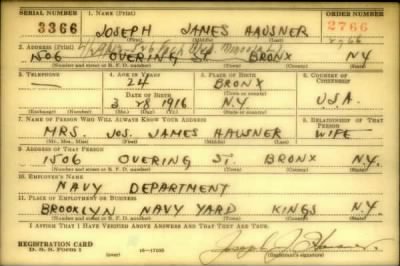 SERIAL NUMBER 1. NAME (Print) ORDER NUMBER
3366 JOSEPH JAMES HAUSNER 2766
(First) (Middle) (Last)
2. ADDRESS (Print)
1506 OVERING ST. BRONX N.Y.
(Number and street or R. F. D. number) (Town) (County) (State)
3. TELEPHONE 4. AGE IN YEARS 5. PLACE OF BIRTH 6. COUNTRY OF CITIZENSHIP
24 BRONX
DATE OF BIRTH (Town or county)
3 28 1916 N.Y. U.S.A.
(Exchange) (Number) (Mo.) (Day) (Yr.) (State or country)
7. NAME OF PERSON WHO WILL ALWAYS KNOW YOUR ADDRESS 8. RELATIONSHIP OF THAT PERSON
MRS. JOS. JAMES HAUSNER WIFE
(Mr., Mrs., Miss) (First) (Middle) (Last)
9. ADDRESS OF THAT PERSON
1506 OVERING ST. BRONX N.Y.
(Number and street or R. F. D. number) (Town) (County) (State)
10. EMPLOYER'S NAME
NAVY DEPARTMENT
11. PLACE OF EMPLOYMENT OR BUSINESS
BROOKLYN NAVY YARD KINGS N.Y.
(Number and street or R. F. D. number) (Town) (County) (State)
I AFFIRM THAT I HAVE VERIFIED ABOVE ANSWERS AND THAT THEY ARE TRUE.
REGISTRATION CARD
D. S. S. Form 1 (over) 16—17105 (Registrant's signature)